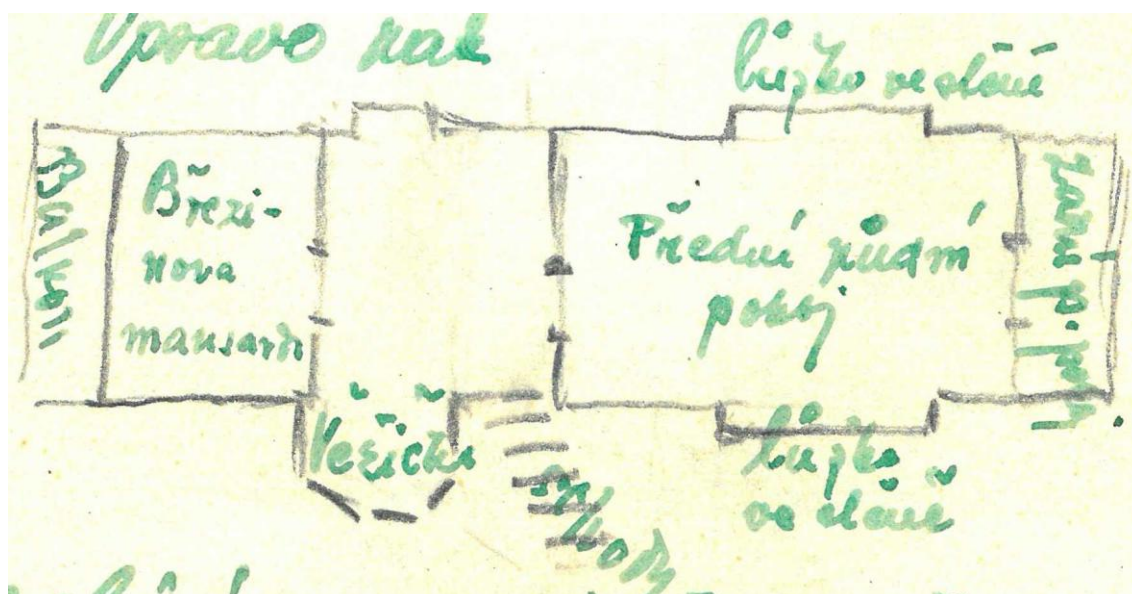 Vpravo
lůžko ve stěně
Balkon
Březi-
nova
mansarda
Přední půdní
pokoj
Zadní p. pokoj
Věžička
schody
lůžko
ve stěně